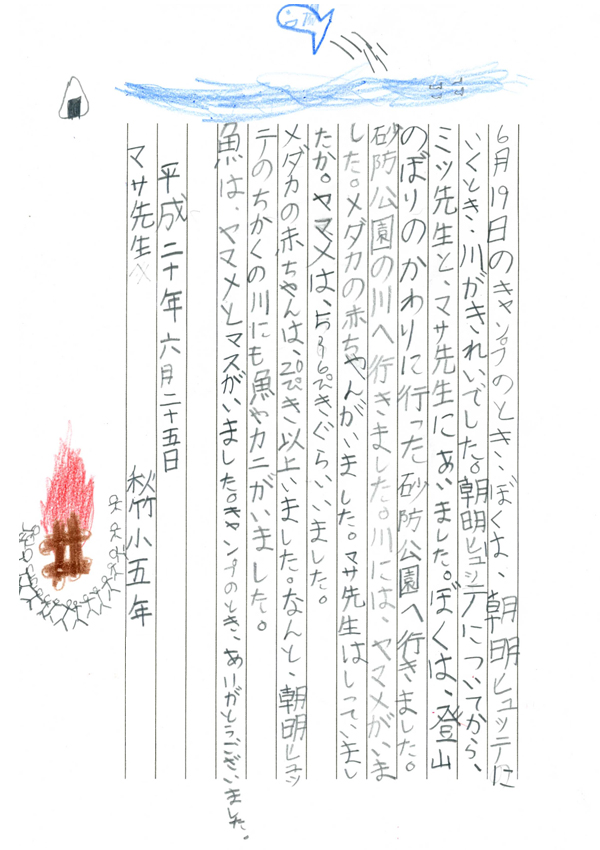 6月19日のキャンプのとき、ぼくは、朝明ヒュッテに
いくとき、川がきれいでした。朝明ヒュッテについてから、
ミツ先生と、マサ先生にあいました。ぼくは、登山
のぼりのかわりに行った砂防公園へ行きました。
砂防公園の川へ行きました。川には、ヤマメがいま
した。メダカの赤ちゃんがいました。マサ先生はしっていまし
たか。ヤマメは、5〜6ぴきぐらいいました。
メダカの赤ちゃんは、20ぴき以上いました。なんと、朝明ヒュッ
テのちかくの川にも魚やカニがいました。
魚は、ヤマメとマスがいました。キャンプのとき、ありがとうございました。
平成二十年六月二十五日
マサ先生へ 秋竹小五年